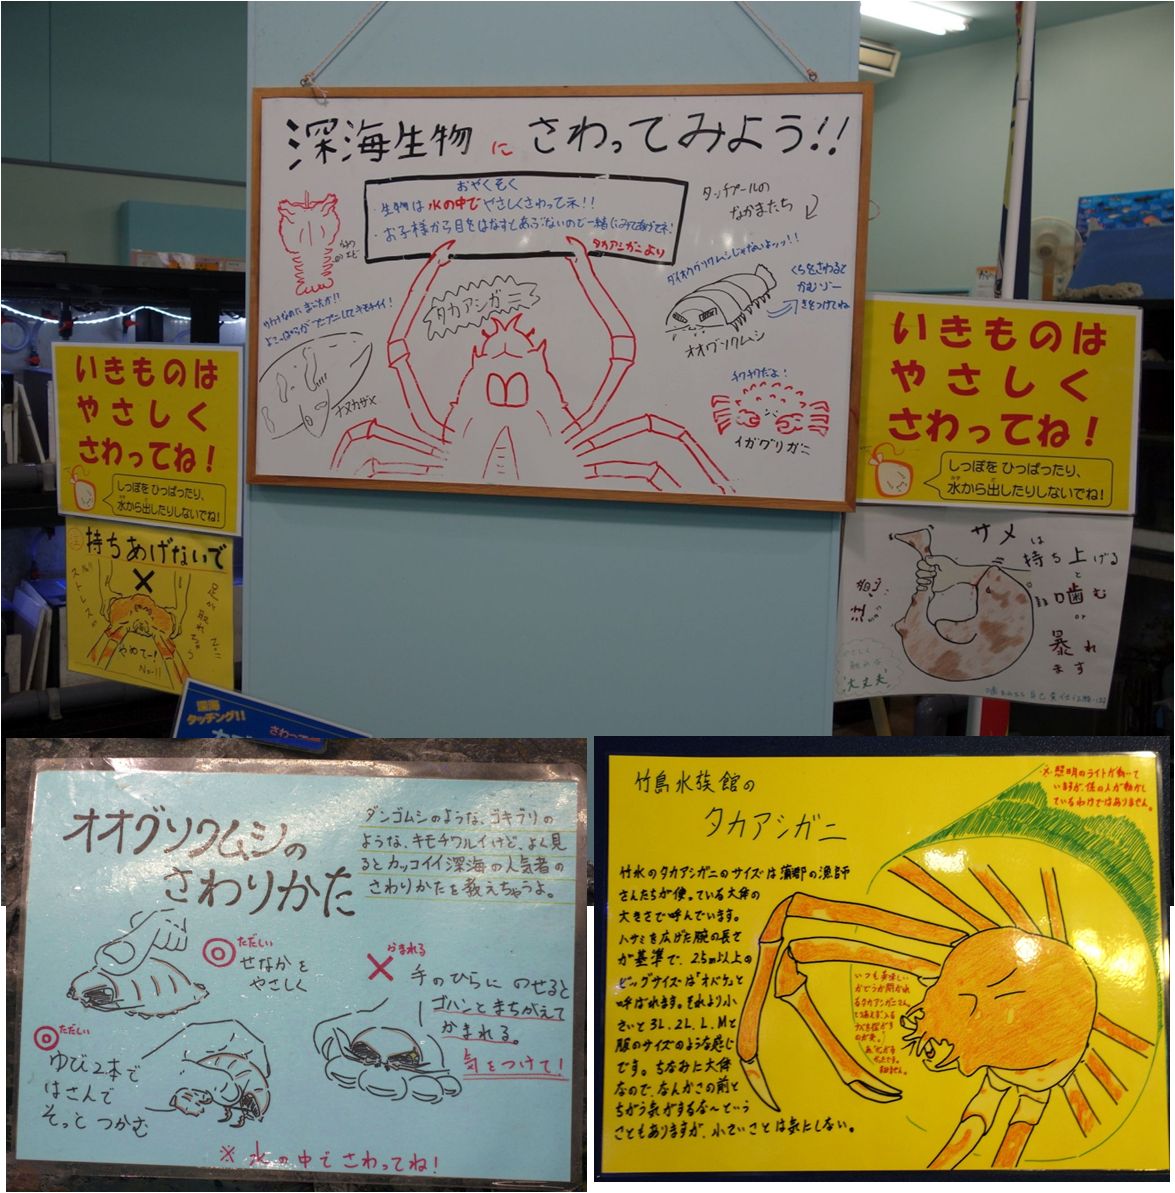 深海生物にさわってみよう!!
おやくそく
・生物は水の中でやさしくさわって下!!
・お子様から目をはなすとあぶないので一緒にみてあげてネ!
タカアシガニより
タッチプールの
なかまたち
タカアシガニ
ダイオウグソクムシじゃないよッッ!!
くちをさわると
かむゾー
きをつけてね
オオグソクムシ
ナヌカザメ
チクチクだよ!
イガグリガニ
いきものは
やさしく
さわってね!
しっぽを ひっぱったり、
水から出したりしないでね!
持ちあげないで
×
ストレス
足が取れちゃう
やめてー!
いきものは
やさしく
さわってね!
しっぽを ひっぱったり、
水から出したりしないでね!
サメは
持ち上げる
と
噛む
or
暴れ
ます
大丈夫
深海
タッチング!!
オオグソクムシの
さわりかた
ダンゴムシのような、ゴキブリの
ような、キモチワルイけど、よく見
るとカッコイイ深海の人気者の
さわりかたを教えちゃうよ。
◎ ただしい
せなかを
やさしく
◎ ただしい
ゆび2本で
はさんで
そっと つかむ
× かまれる
手のひらに のせると
ゴハンとまちがえて
かまれる。
気をつけて!
※ 水の中でさわってね!
竹島水族館の
タカアシガニ
※照明のライトが動いて
いますが、係の人が動かし
ているわけではありません。
竹水のタカアシガニのサイズは蒲郡の漁師
さんたちが使っている大体の
大きさで呼んでいます。
ハサミを広げた腕の長さ
が基準で、2.5m以上の
ビッグサイズは「オバケ」と
呼ばれます。それより小
さいと3L、2L、L、Mと
服のサイズのような感じ
です。ちなみに大体
なので、なんかこの前と
ちがう気がするな〜という
こともありますが、小さいことは気にしない。